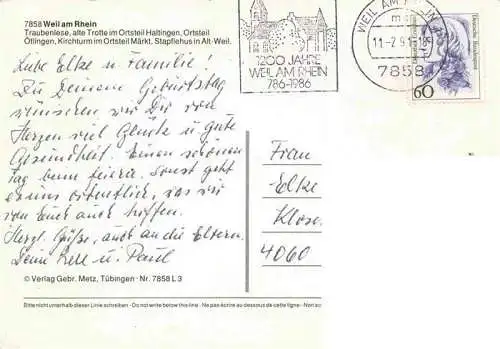 7858 Weil am Rhein
Traubenlese, alte Trotte im Ortsteil Haltingen, Ortsteil
Ötlingen, Kirchturm im Ortsteil Märkt, Stapflehus in Alt-Weil.
1200 JAHRE
WEIL AM RHEIN
786-1986
WEIL AM RHEIN 1
11-7.91-18
7858
60
Liebe Elke u. Familie!
Zu Deinem Geburtstag
wünschen wir Dir von
Herzen viel Glück u. gute
Gesundheit. Einen schönen
Tag beim feiern. Sonst geht
es uns ordentlich, was wir
von Euch auch hoffen.
Herzl. Grüße, auch an die Eltern.
Deine u. Paul
Frau
Elke
Klose
4060
© Verlag Gebr. Metz, Tübingen · Nr. 7858 L 3
Bitte nicht unterhalb dieser Linie schreiben · Do not write below this line · Ne pas écrire au dessous de cette ligne · Not